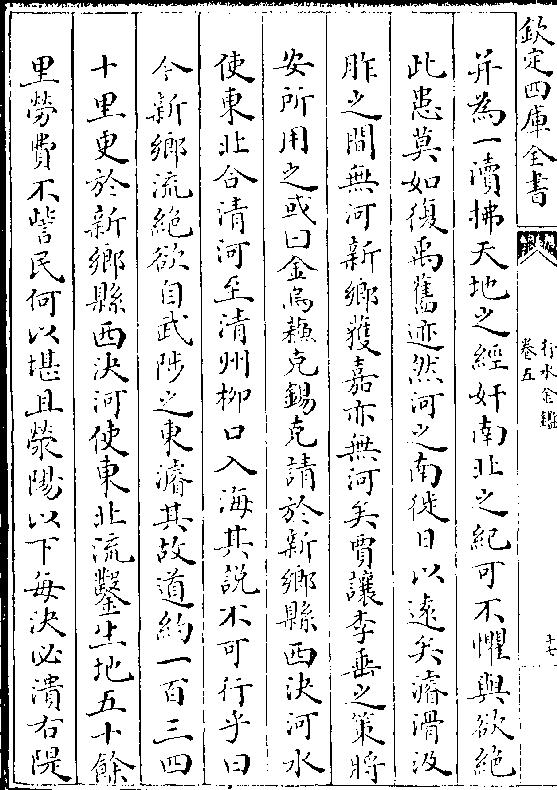 欽定四庫全書
行水金鑑
卷五
十七
并為一瀆拂天地之經奸南北之紀可不懼與欲絶
此患莫如復禹舊迹然河之南徙日以遠矣濬滑汲
胙之間無河新鄉獲嘉亦無河矣賈讓李垂之策將
安所用之或曰金烏蘓克錫克請於新鄉縣西決河水
使東北合清河至清州柳口入海其說不可行乎曰
今新鄉流絶欲自武陟之東濬其故道約一百三四
十里更於新鄉縣西決河使東北流鑿生地五十餘
里勞費不訾民何以堪且滎陽以下每決必潰右隄